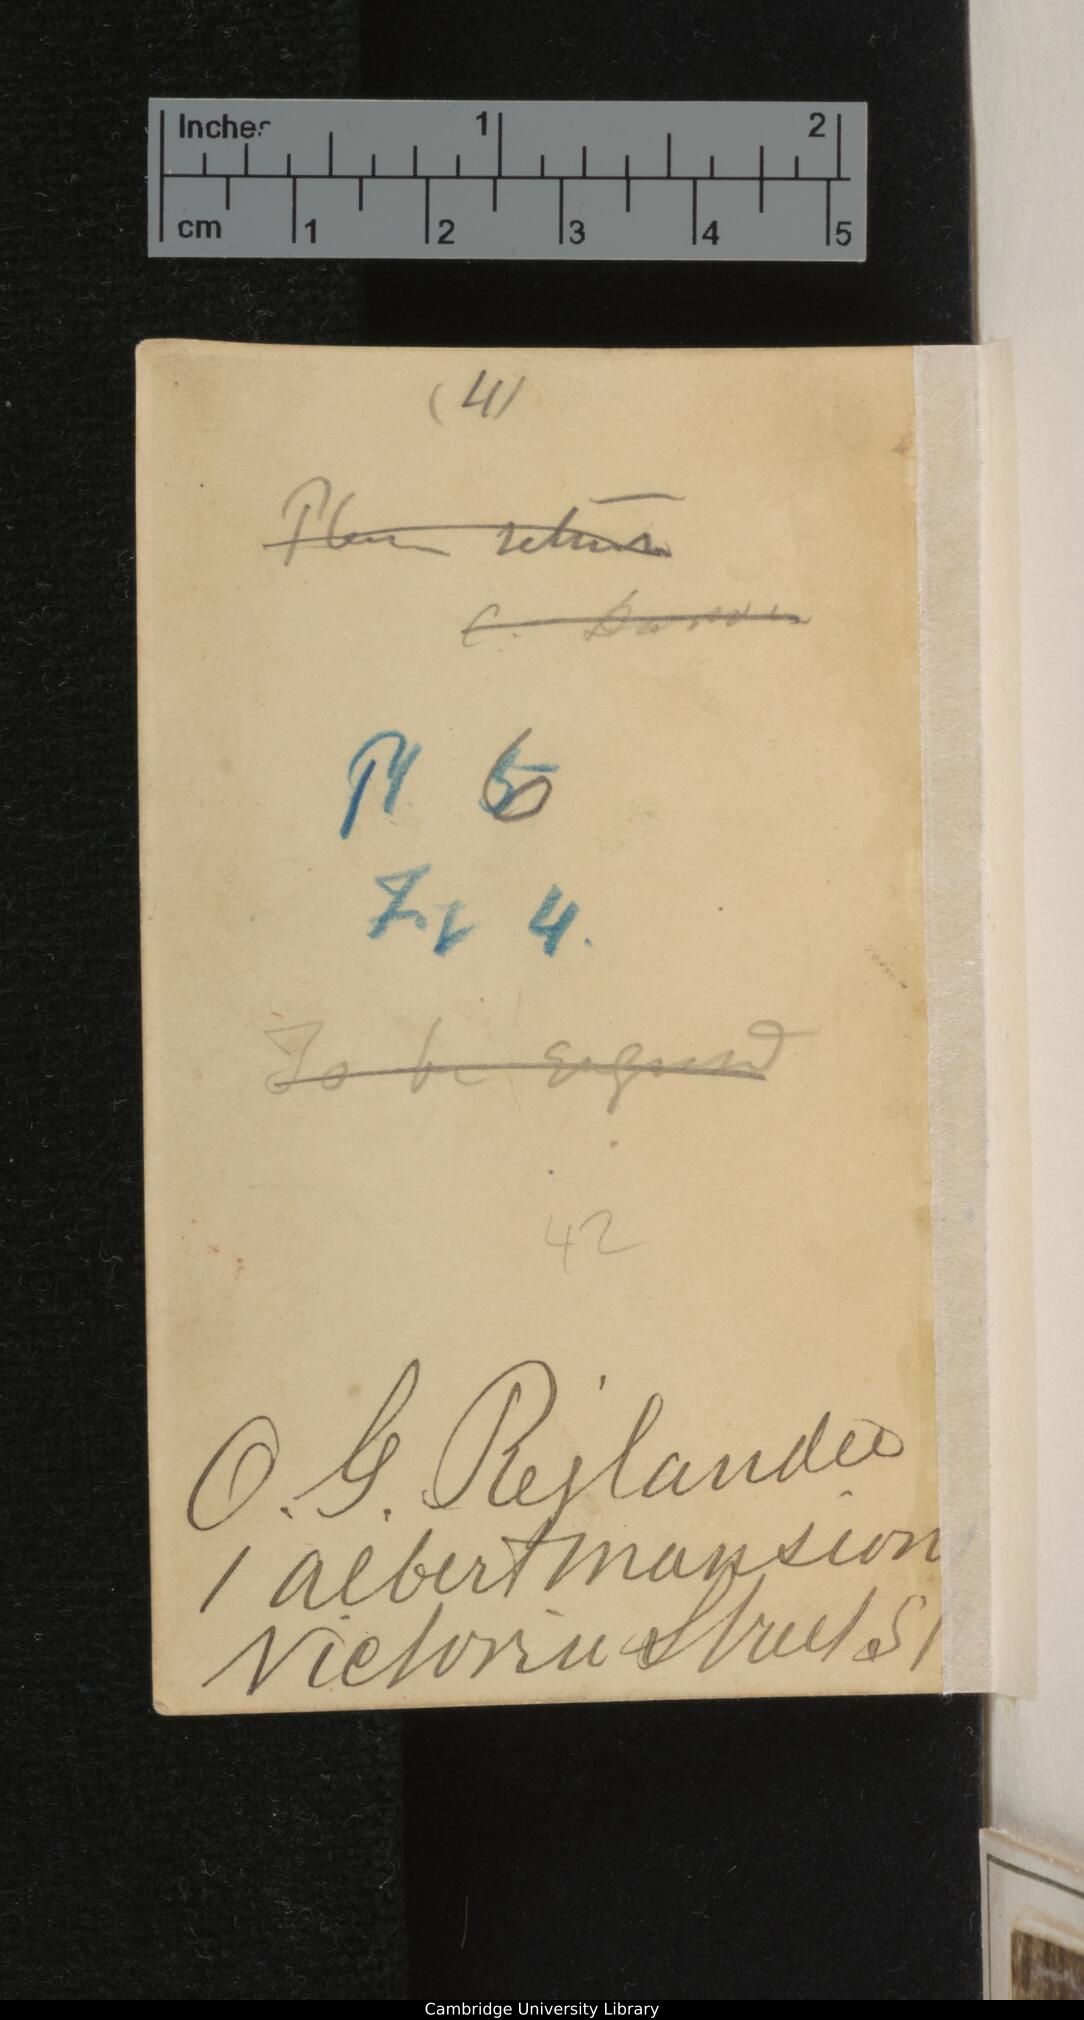 Inches 1 2
cm 1 2 3 4 5
(4)
Please return
C. Darwin
Pl 6
Fig 4.
To be engraved
42
O. G. Rejlander
1 albert mansion
Victoria Street S
Cambridge University Library